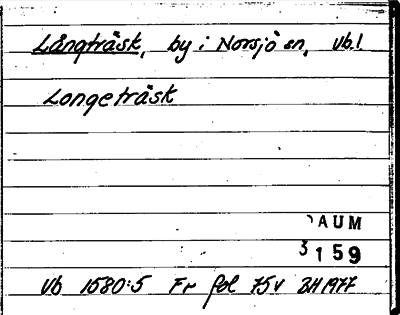 Långträsk, by i Norsjö sn, Vb.l
Longeträsk
DAUM
3159
Vb 1580:5 Fr fol 75v BH 1977